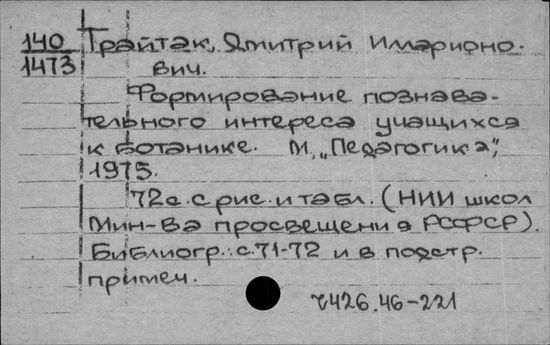 140 Трайтак, Дмитрий Иларионо-
1473 вич.
Формирование познава-
тельного интереса учащихся
к ботанике. М., „Педагогика",
1975.
72с. с рис. и табл. (НИИ школ
Мин-ва просвещения РСФСР).
Библиогр.: с. 71-72 и в подстр.
примеч.
ч426.46-221